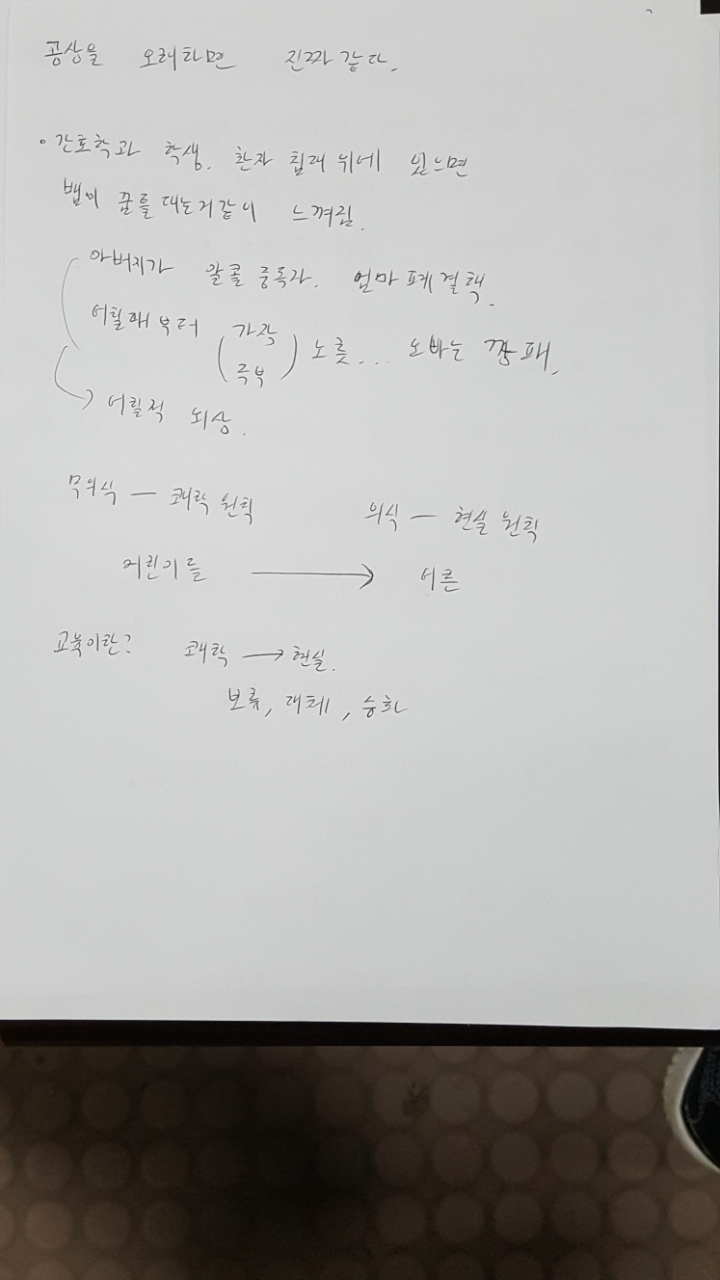 공상을 오래하면 진짜같다.
• 간호학과 학생. 환자 침대 위에 있으면
뱀이 꿈틀대는거같이 느껴짐.
아버지가 알콜 중독자. 엄마 폐결핵.
어릴때부터 (가장 주부) 노릇... 오빠는 깡패.
어릴적 뇌상.
무의식 — 쾌락 원칙 의식 — 현실 원칙
어린이들 → 어른
교육이란? 쾌락 → 현실.
보류, 대체, 승화